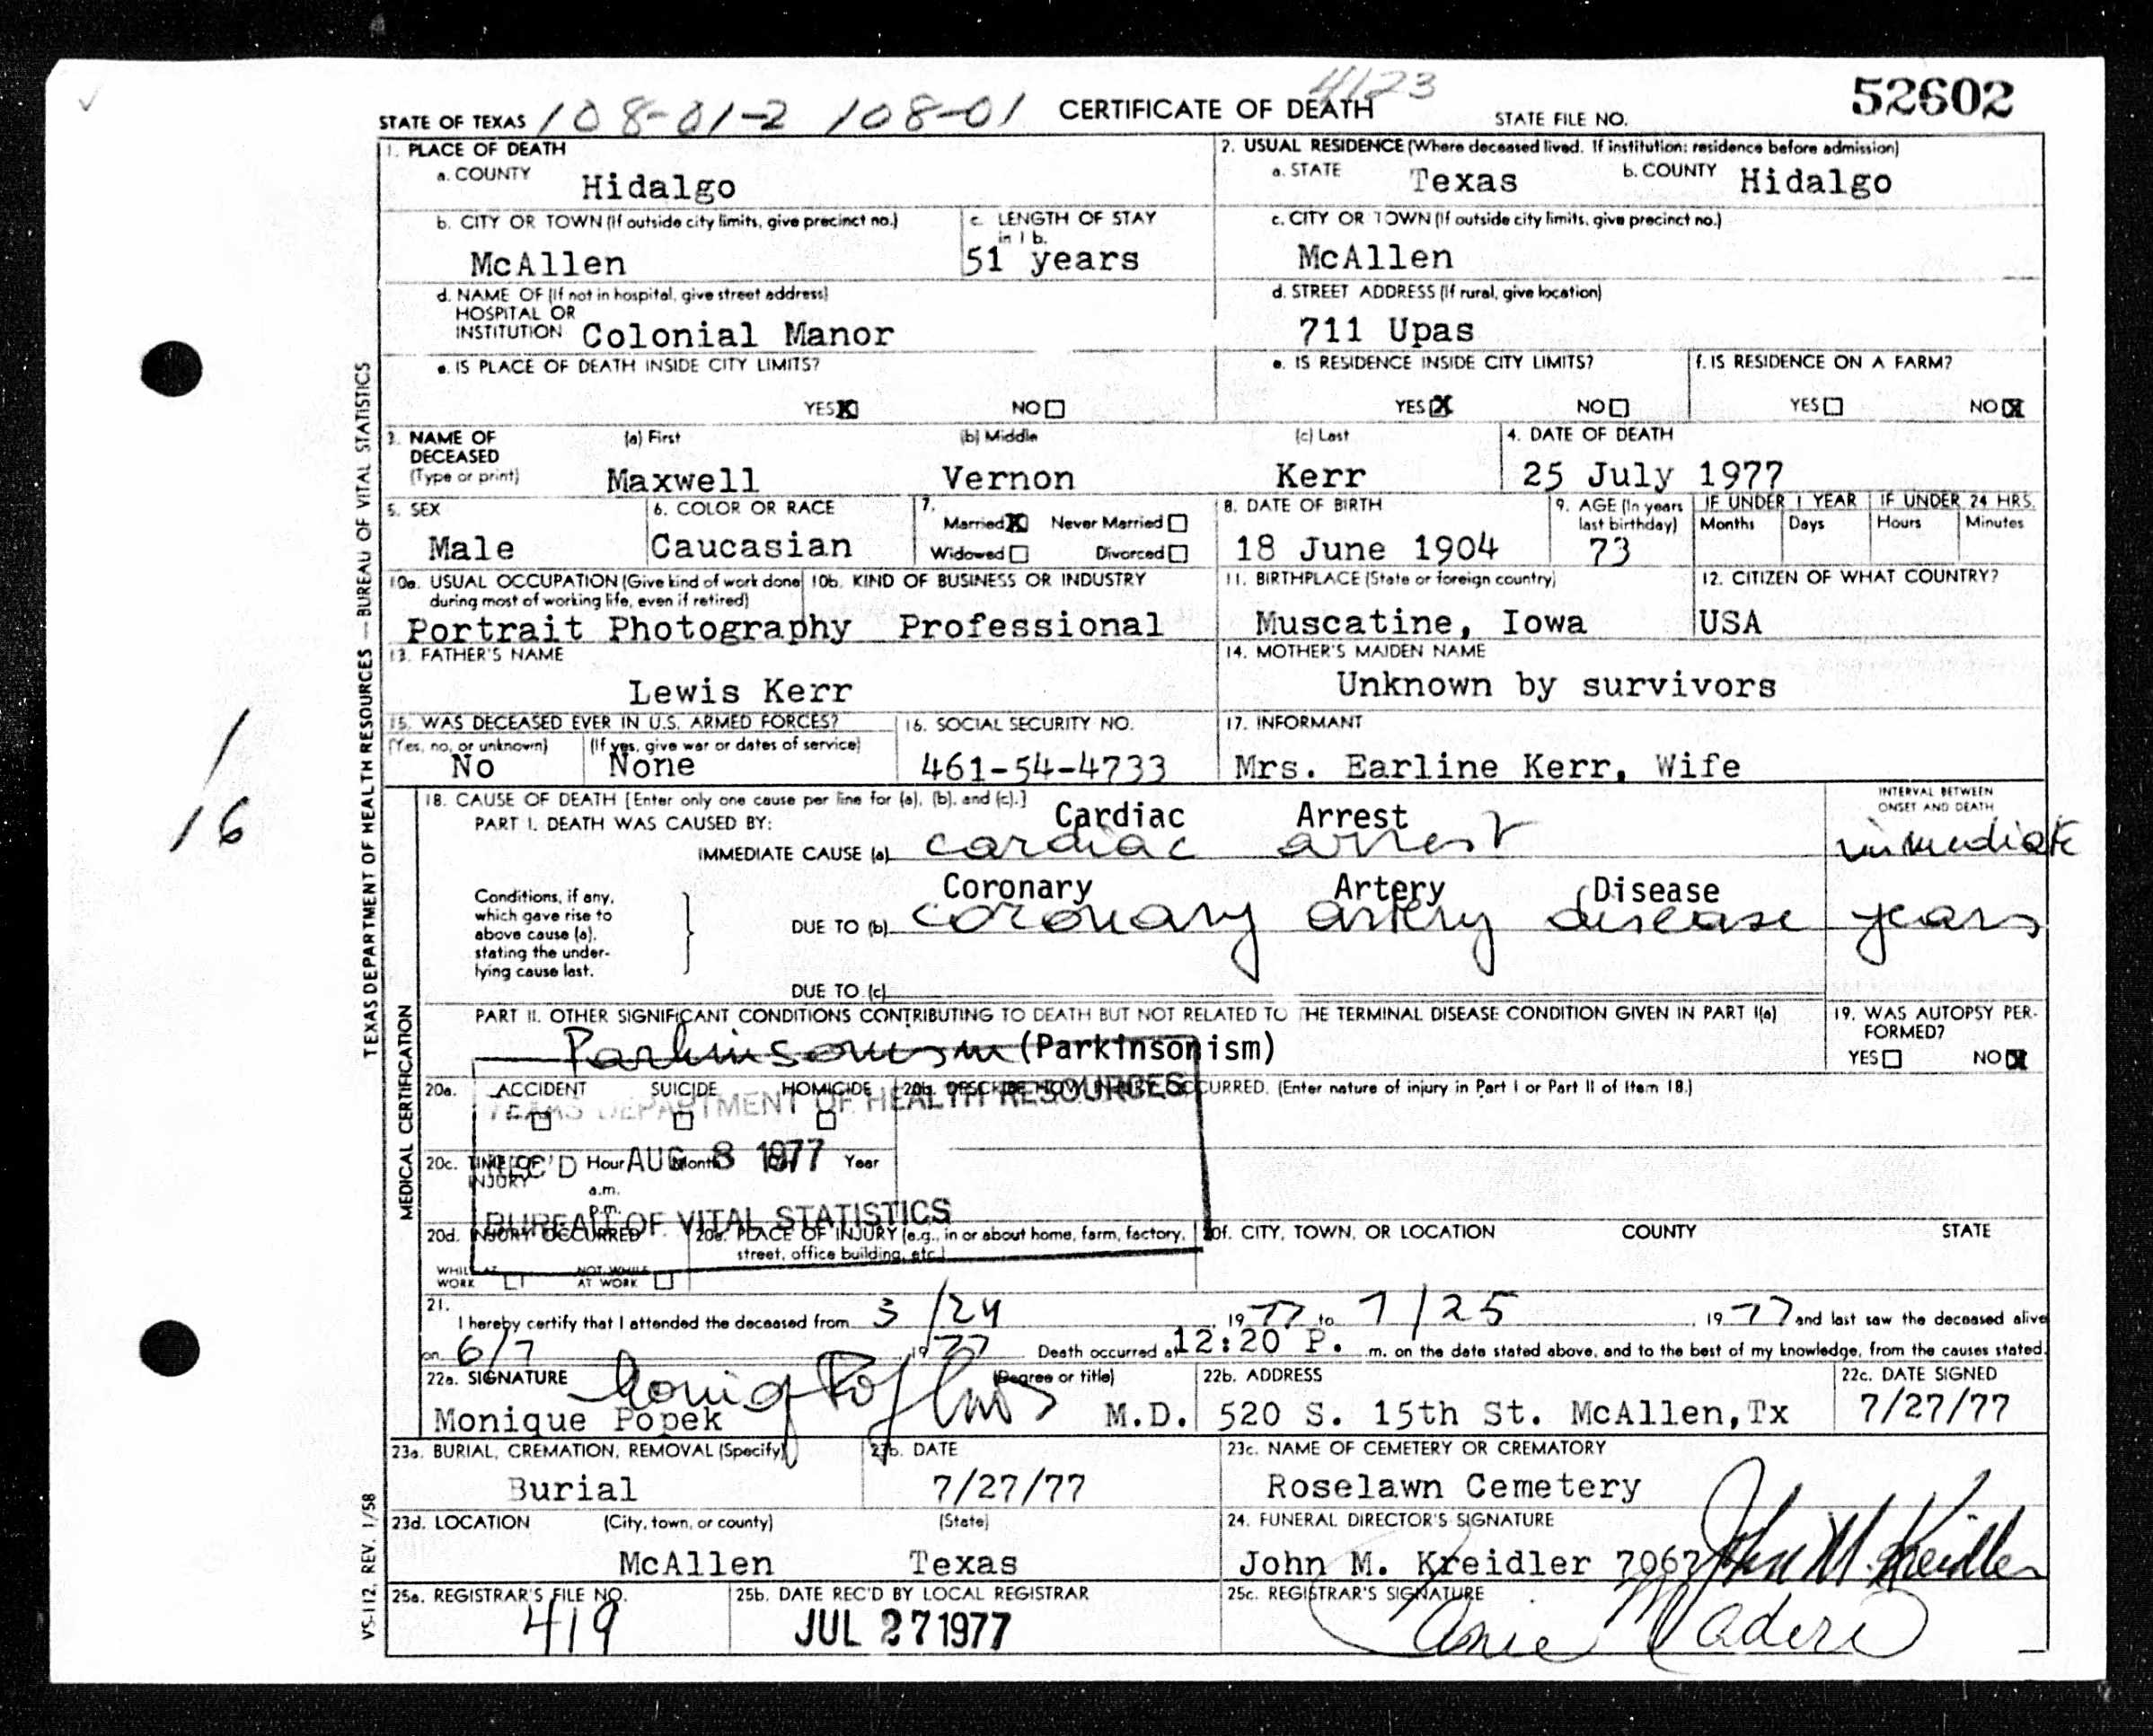 4123
52602
STATE OF TEXAS 108-01-2 108-01 CERTIFICATE OF DEATH STATE FILE NO.
1. PLACE OF DEATH 2. USUAL RESIDENCE (Where deceased lived. If institution: residence before admission)
a. COUNTY Hidalgo a. STATE Texas b. COUNTY Hidalgo
b. CITY OR TOWN (If outside city limits, give precinct no.) c. LENGTH OF STAY in 1 b. c. CITY OR TOWN (If outside city limits, give precinct no.)
McAllen 51 years McAllen
d. NAME OF (If not in hospital, give street address) d. STREET ADDRESS (If rural, give location)
HOSPITAL OR
INSTITUTION Colonial Manor 711 Upas
e. IS PLACE OF DEATH INSIDE CITY LIMITS? e. IS RESIDENCE INSIDE CITY LIMITS? f. IS RESIDENCE ON A FARM?
YES X NO YES X NO YES NO X
3. NAME OF DECEASED (a) First (b) Middle (c) Last 4. DATE OF DEATH
(Type or print) Maxwell Vernon Kerr 25 July 1977
5. SEX 6. COLOR OR RACE 7. Married X Never Married 8. DATE OF BIRTH 9. AGE (In years last birthday) IF UNDER 1 YEAR IF UNDER 24 HRS.
Months Days Hours Minutes
Male Caucasian Widowed Divorced 18 June 1904 73
10a. USUAL OCCUPATION (Give kind of work done during most of working life, even if retired) 10b. KIND OF BUSINESS OR INDUSTRY 11. BIRTHPLACE (State or foreign country) 12. CITIZEN OF WHAT COUNTRY?
Portrait Photography Professional Muscatine, Iowa USA
13. FATHER'S NAME 14. MOTHER'S MAIDEN NAME
Lewis Kerr Unknown by survivors
15. WAS DECEASED EVER IN U.S. ARMED FORCES? 16. SOCIAL SECURITY NO. 17. INFORMANT
(Yes, no, or unknown) (If yes, give war or dates of service)
No None 461-54-4733 Mrs. Earline Kerr, Wife
18. CAUSE OF DEATH [Enter only one cause per line for (a), (b), and (c).] INTERVAL BETWEEN ONSET AND DEATH
PART I. DEATH WAS CAUSED BY: Cardiac Arrest
IMMEDIATE CAUSE (a) cardiac arrest immediate
Conditions, if any, which gave rise to above cause (a), stating the underlying cause last.
Coronary Artery Disease
DUE TO (b) coronary artery disease years
DUE TO (c)
PART II. OTHER SIGNIFICANT CONDITIONS CONTRIBUTING TO DEATH BUT NOT RELATED TO THE TERMINAL DISEASE CONDITION GIVEN IN PART I(a) 19. WAS AUTOPSY PERFORMED?
Parkinsonism (Parkinsonism) YES NO X
20a. ACCIDENT SUICIDE HOMICIDE 20b. DESCRIBE HOW INJURY OCCURRED. (Enter nature of injury in Part I or Part II of Item 18.)
TEXAS DEPARTMENT OF HEALTH RESOURCES
20c. TIME OF INJURY Hour Month Year
a.m.
p.m.
REC'D AUG 8 1977
BUREAU OF VITAL STATISTICS
20d. INJURY OCCURRED 20e. PLACE OF INJURY (e.g., in or about home, farm, factory, street, office building, etc.) 20f. CITY, TOWN, OR LOCATION COUNTY STATE
WHILE AT WORK NOT WHILE AT WORK
21. I hereby certify that I attended the deceased from 3/24, 1977 to 7/25, 1977 and last saw the deceased alive
on 6/7 1977 Death occurred at 12:20 P. m. on the date stated above, and to the best of my knowledge, from the causes stated.
22a. SIGNATURE (Degree or title) 22b. ADDRESS 22c. DATE SIGNED
Monique Popek M.D. 520 S. 15th St. McAllen, Tx 7/27/77
23a. BURIAL, CREMATION, REMOVAL (Specify) 23b. DATE 23c. NAME OF CEMETERY OR CREMATORY
Burial 7/27/77 Roselawn Cemetery
23d. LOCATION (City, town, or county) (State) 24. FUNERAL DIRECTOR'S SIGNATURE
McAllen Texas John M. Kreidler 7067 John M. Kreidler
25a. REGISTRAR'S FILE NO. 25b. DATE REC'D BY LOCAL REGISTRAR 25c. REGISTRAR'S SIGNATURE
419 JUL 27 1977
TEXAS DEPARTMENT OF HEALTH RESOURCES — BUREAU OF VITAL STATISTICS
MEDICAL CERTIFICATION
VS-112, REV. 1/58
1
16